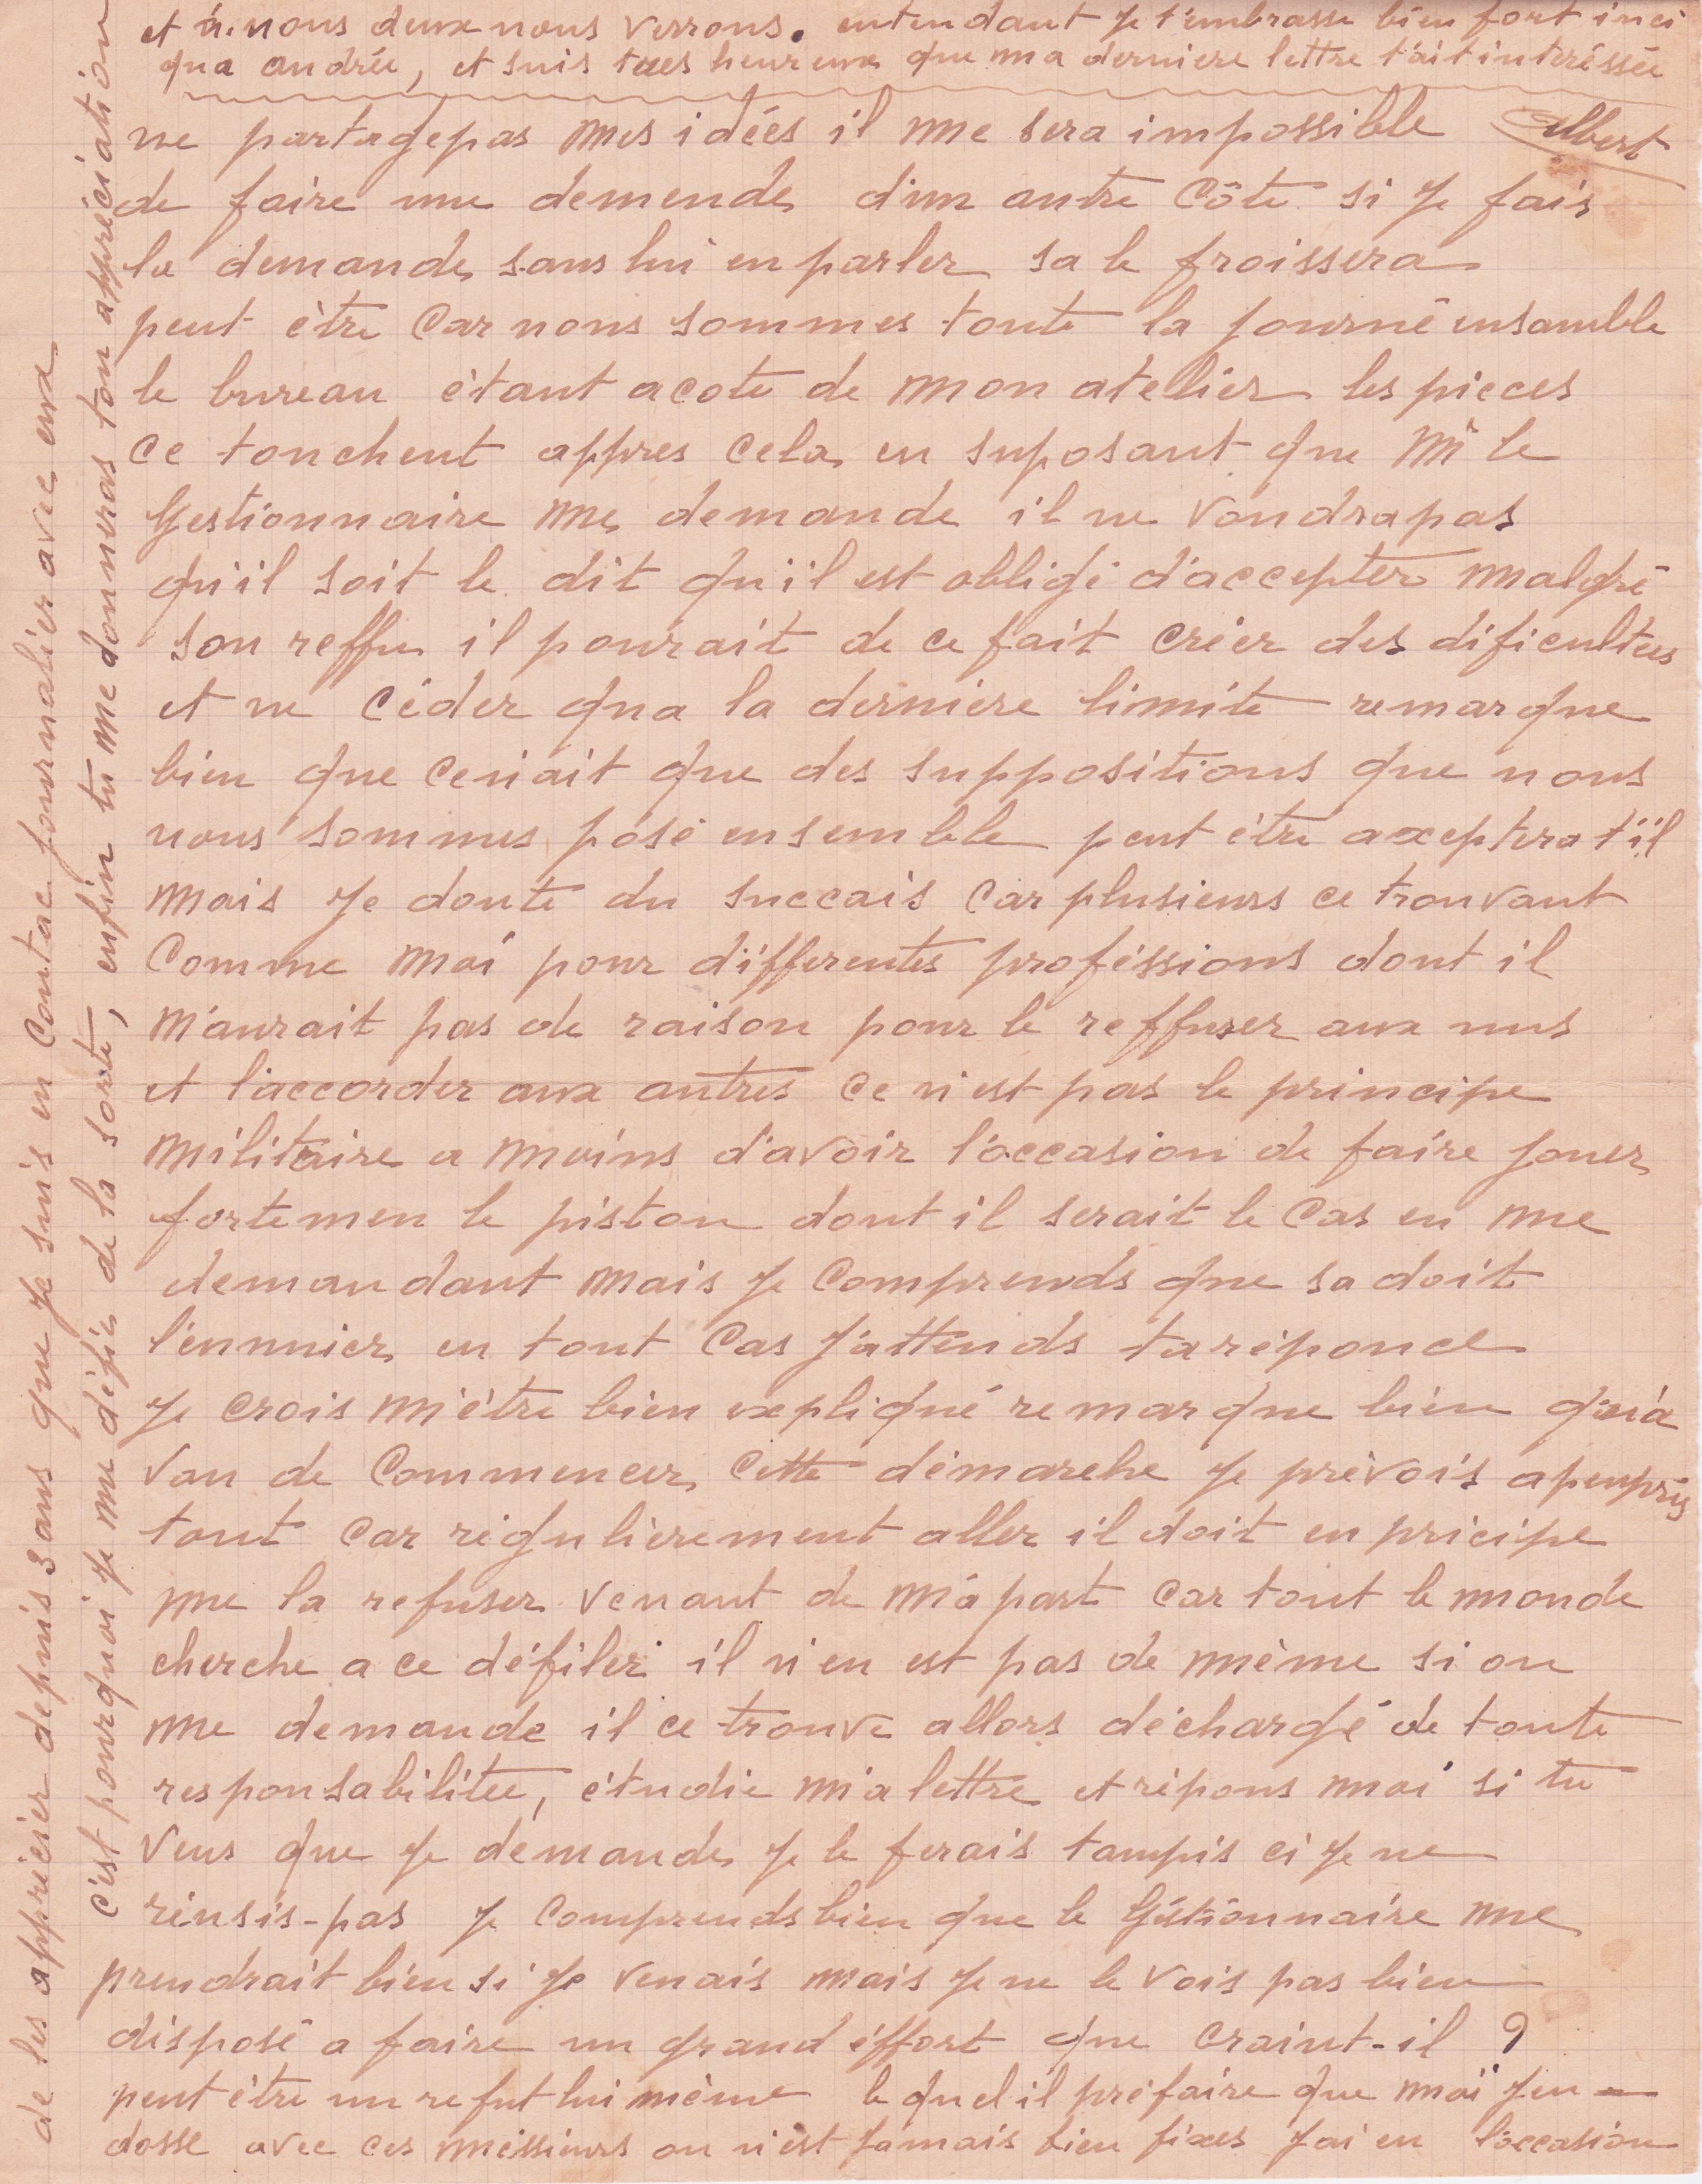 ne partagepas mes idées il me sera impossible
de faire une demende d'un autre côte si je fais
la demande sans lui en parler sa le froissera
peut ètre car nous sommes toute la journé ensamble
le bureau étant acote de mon atelier les pieces
ce touchent appres cela en suposant que Mr le
Gestionnaire me demande il ne voudrapas
qu'il soit le dit qu'il est obligé d'accepter malgré
son reffu il pourait de ce fait créer des dificultees
et ne céder qua la derniere limite remarque
bien que ce n'ait que des suppositions que nous
nous sommes posé ensemble peut ètre axeptera t'il
mais je doute du succais car plusieurs ce trouvant
comme moi pour differentes proféssions dont il
n'aurait pas de raison pour le reffuser aux uns
et l'accorder aux autres ce n'est pas le principe
militaire a moins d'avoir l'occasion de faire jouer
fortemen le piston dont il serait le cas en me
demandant mais je comprends que sa doit
l'ennuier en tout cas j'attends ta réponce
je crois m'étre bien expliqué remarque bien qu'a
van de commencer cette démarche je prévois apeuprés
tout car régulièrement aller il doit en pricipe
me la refuser venant de m'a part car tout le monde
cherche a ce défiler il n'en est pas de mème si on
me demande il ce trouve allors déchargé de toute
responsabilitee, étudie m'a lettre et répons moi si tu
veus que je demande je le ferais tampis ci je ne
réusis-pas je comprends bien que le Géstionnaire me
prendrait bien si je venais mais je ne le vois pas bien
disposé a faire un grand éffort que craint-il ?
peut ètre un refut lui mème le quel il préfaire que moi j'en
dosse avec ces méssieurs on n'est jamais bien fixes j'ai eu l'occasion
de les apprécier depuis 3 ans que je suis en contac journalier avec eux
c'est pourquoi je me défie de la sorte, enfin tu me donneras ton appréciation
et a nous deux nous verrons. entendant je t'embrasse bien fort inci
qua andrée, et suis tres heureux que ma derniere lettre t'ait intéréssée
Albert